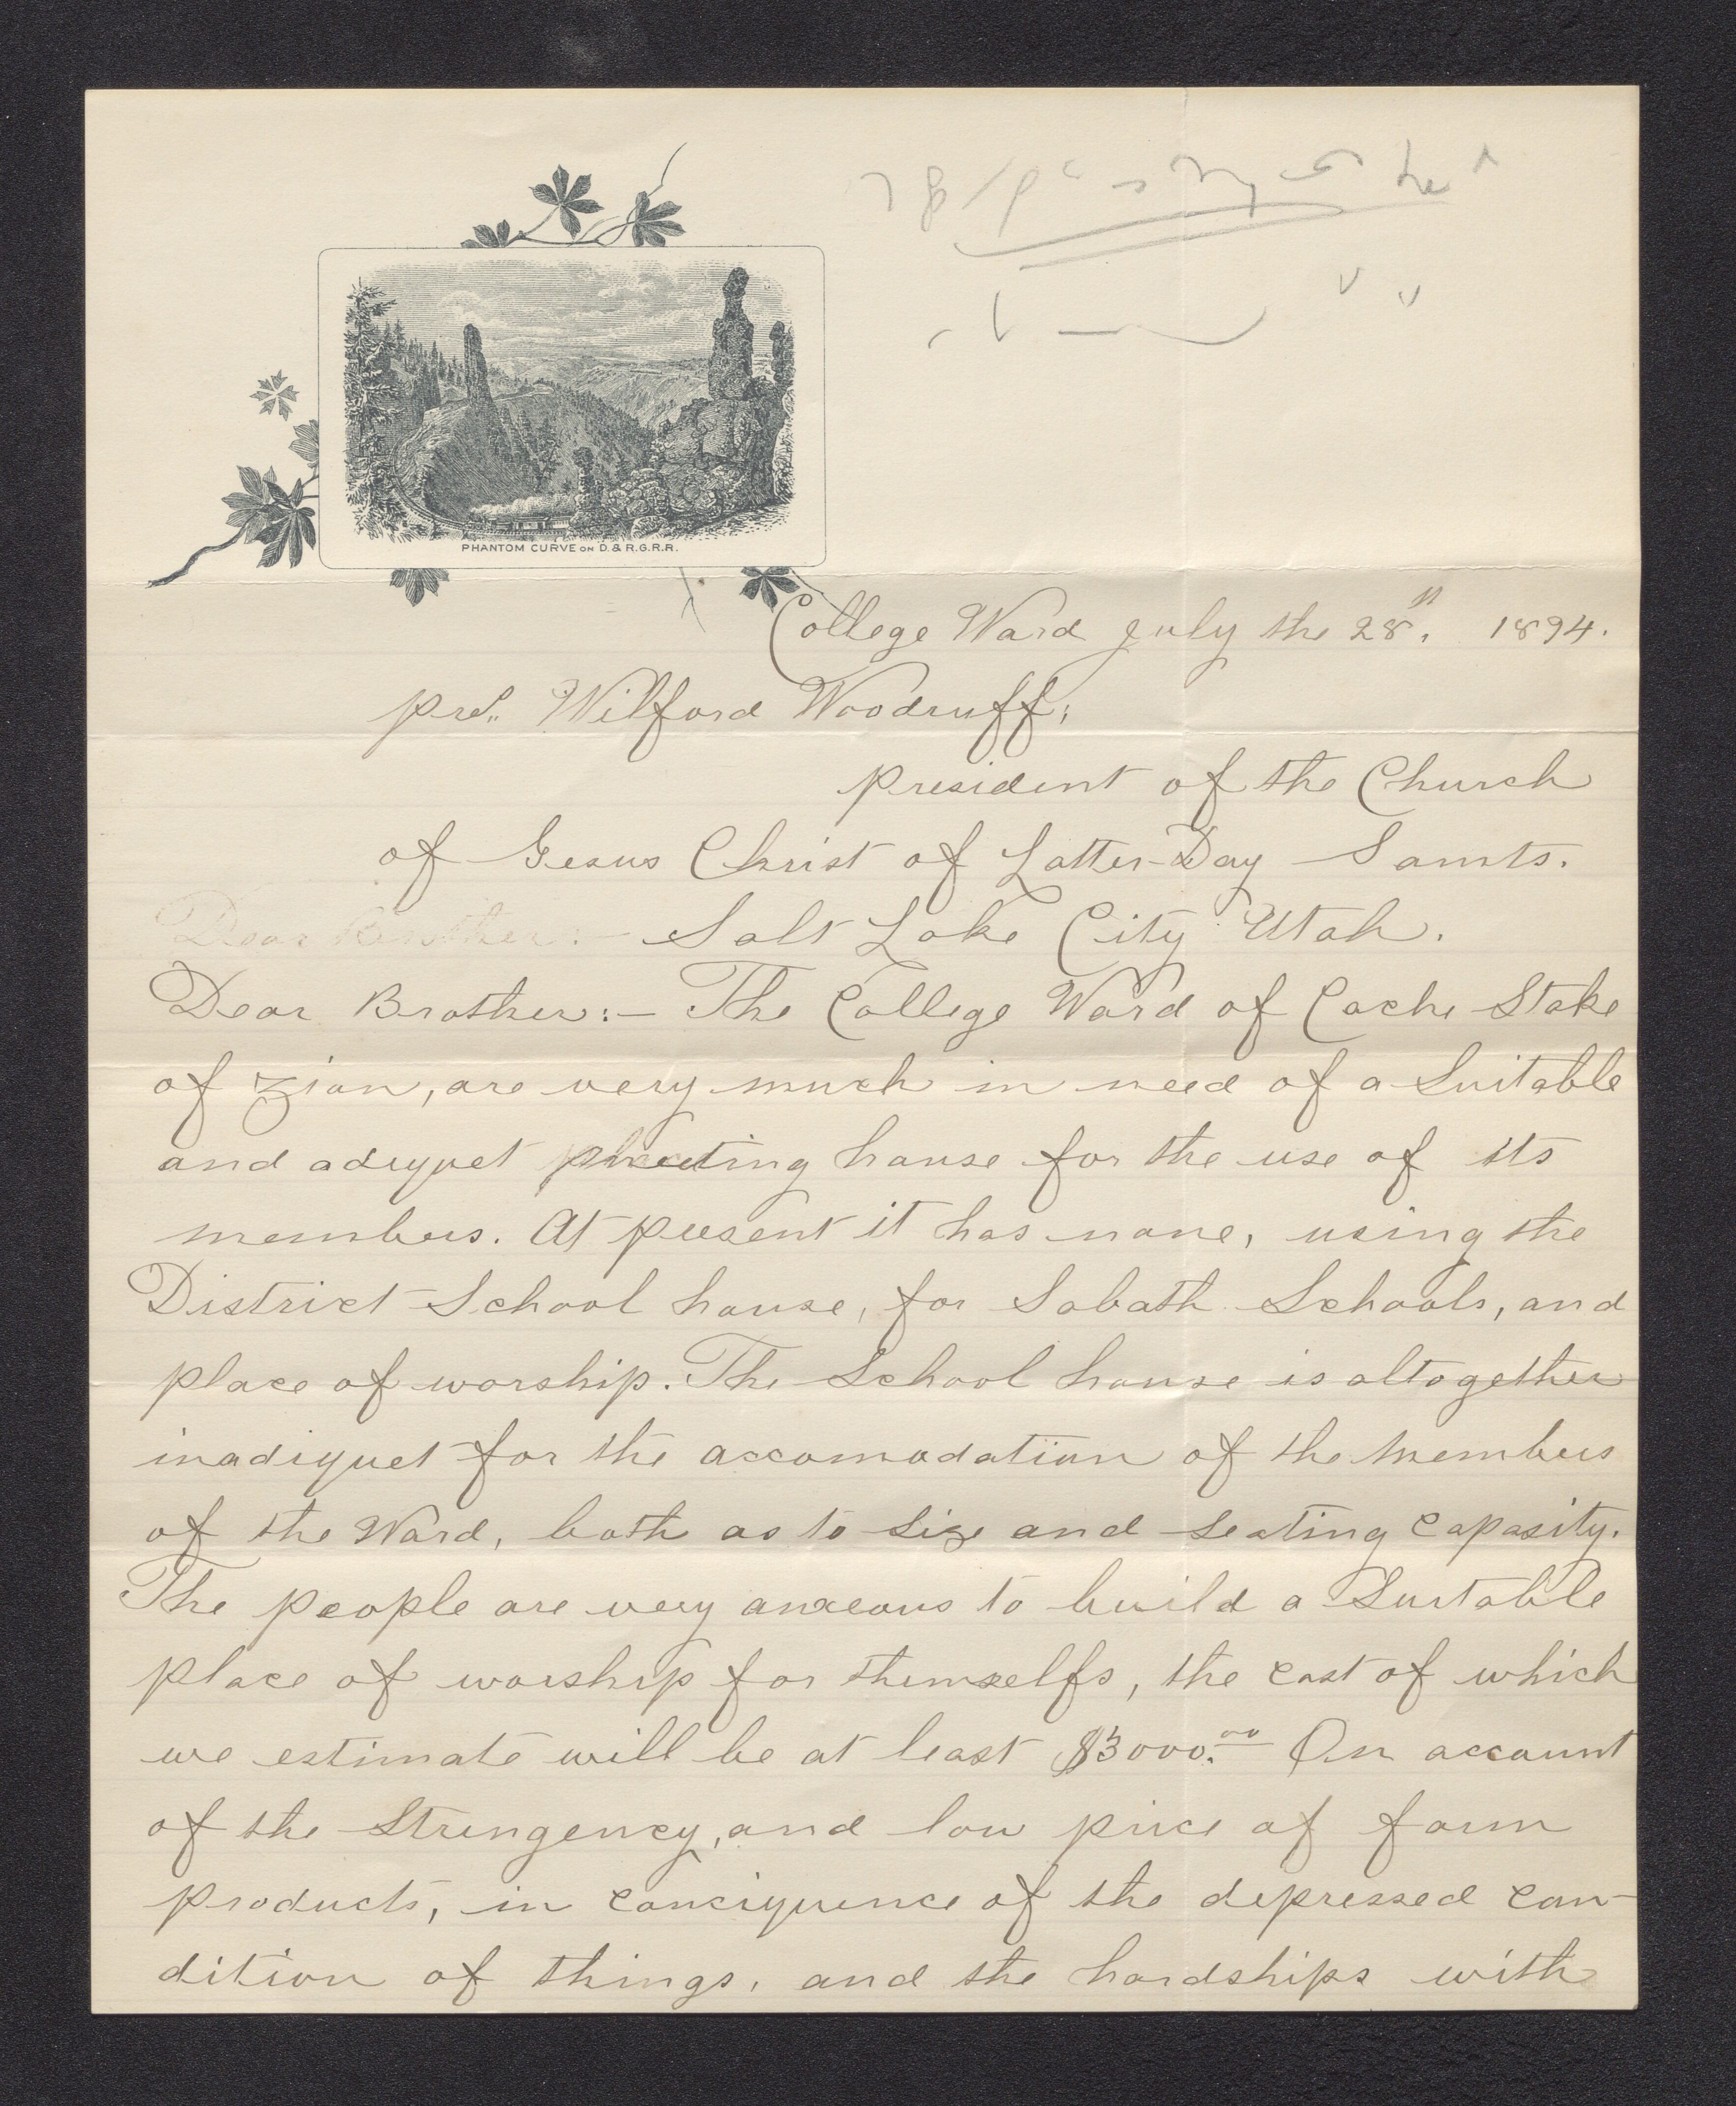 PHANTOM CURVE ON D. & R.G.R.R.
College Ward July the 28th. 1894.
pres.. Wilford Woodruff;
president of the Church
of Gesus Christ of Latter-Day Saints.
Dear Brother:- Salt Lake City Utah.
Dear Brother:- The College Ward of Cache Stake
of Zion, are very much in need of a Suitable
and adiquet meeting house for the use of its
members. At present it has none, using the
District School house, for Sabath Schools, and
place of worship. The School house is altogether
inadiquet for the accomodation of the members
of the Ward, both as to size and seating capasity.
The people are very anxeous to build a Suitable
place of worship for themselfs, the cost of which
we estimate will be at least $3000.00 On account
of the Stringency, and low price of farm
products, in conciquence of the depressed con-
dition of things, and the hardships with